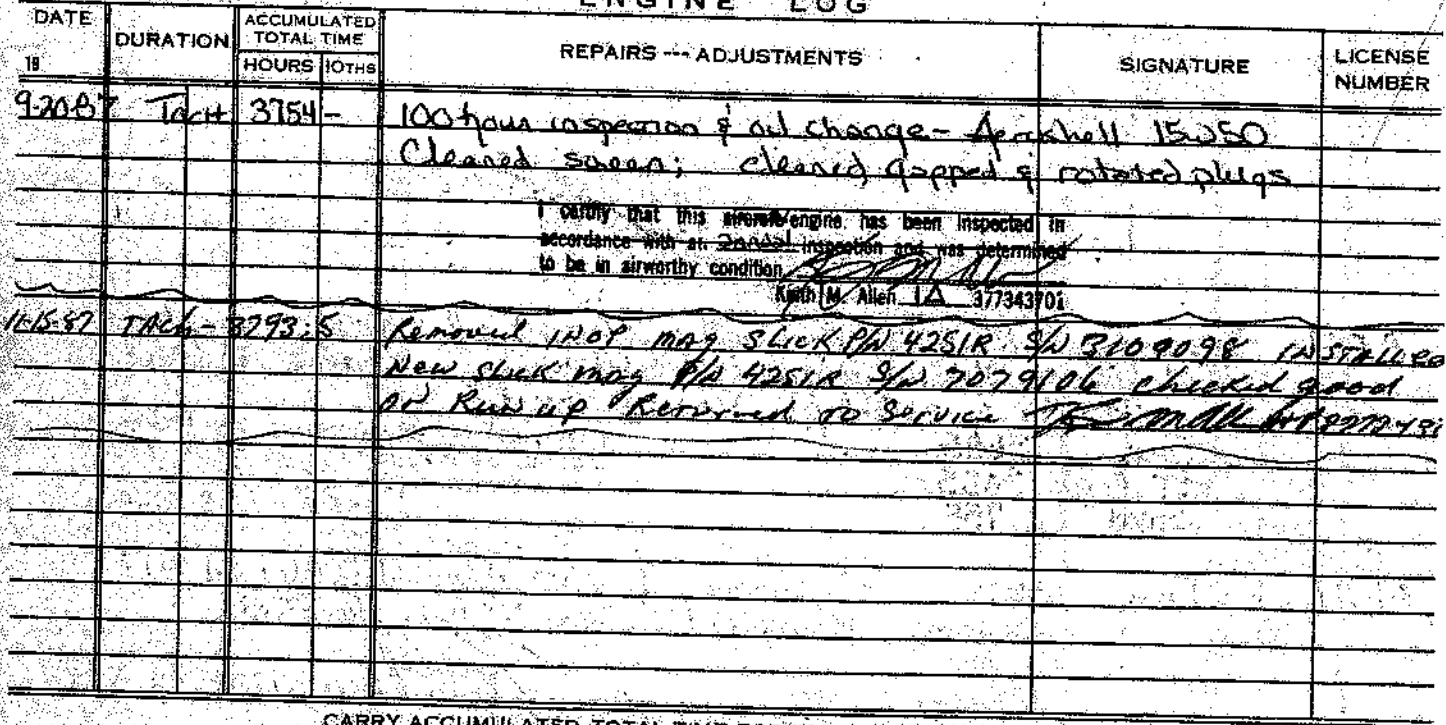 ENGINE LOG
DATE
DURATION
ACCUMULATED TOTAL TIME
REPAIRS --- ADJUSTMENTS
SIGNATURE
LICENSE NUMBER
19
HOURS 10THS
9-20-87 Tach 3754 - 100 hour inspection & oil change - Aeroshell 15W50
Cleaned screen; cleaned, gapped & rotated plugs
I certify that this aircraft/engine has been inspected in
accordance with an annual inspection and was determined
to be in airworthy condition
Keith M. Allen IA 377343701
11-15-87 TACH - 3793.5 Removed INOP mag Slick P/N 4251R S/N 3109098 INSTALLED
New Slick mag P/N 4251R S/N 7079106 checked good
on Run up Returned to Service
CARRY ACCUMULATED TOTAL TIME